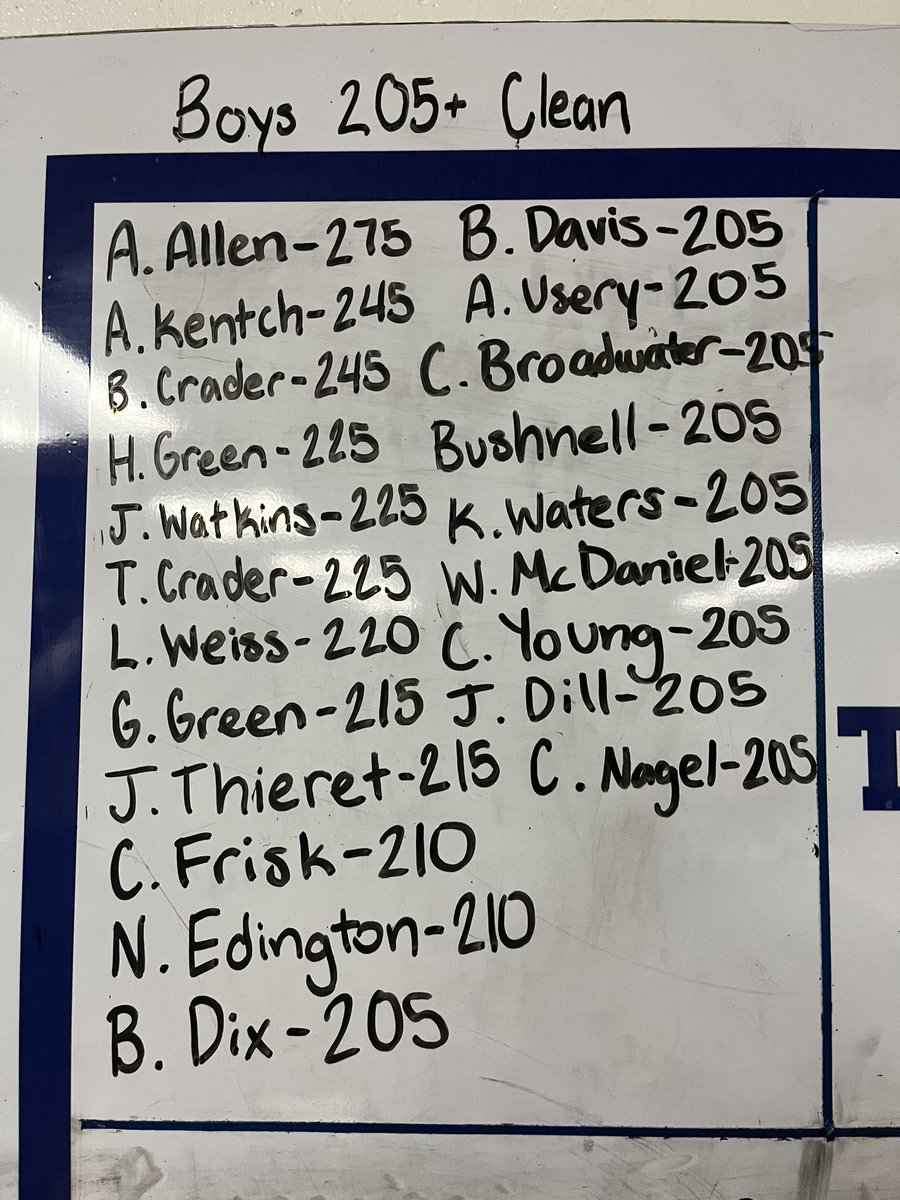 Boys 205+ Clean
A. Allen-275
A. Kentch-245
B. Crader-245
H. Green-225
J. Watkins-225
T. Crader-225
L. Weiss-220
G. Green-215
J. Thieret-215
C. Frisk-210
N. Edington-210
B. Dix-205
B. Davis-205
A. Usery-205
C. Broadwater-205
Bushnell-205
K. Waters-205
W. McDaniel-205
C. Young-205
J. Dill-205
C. Nagel-205